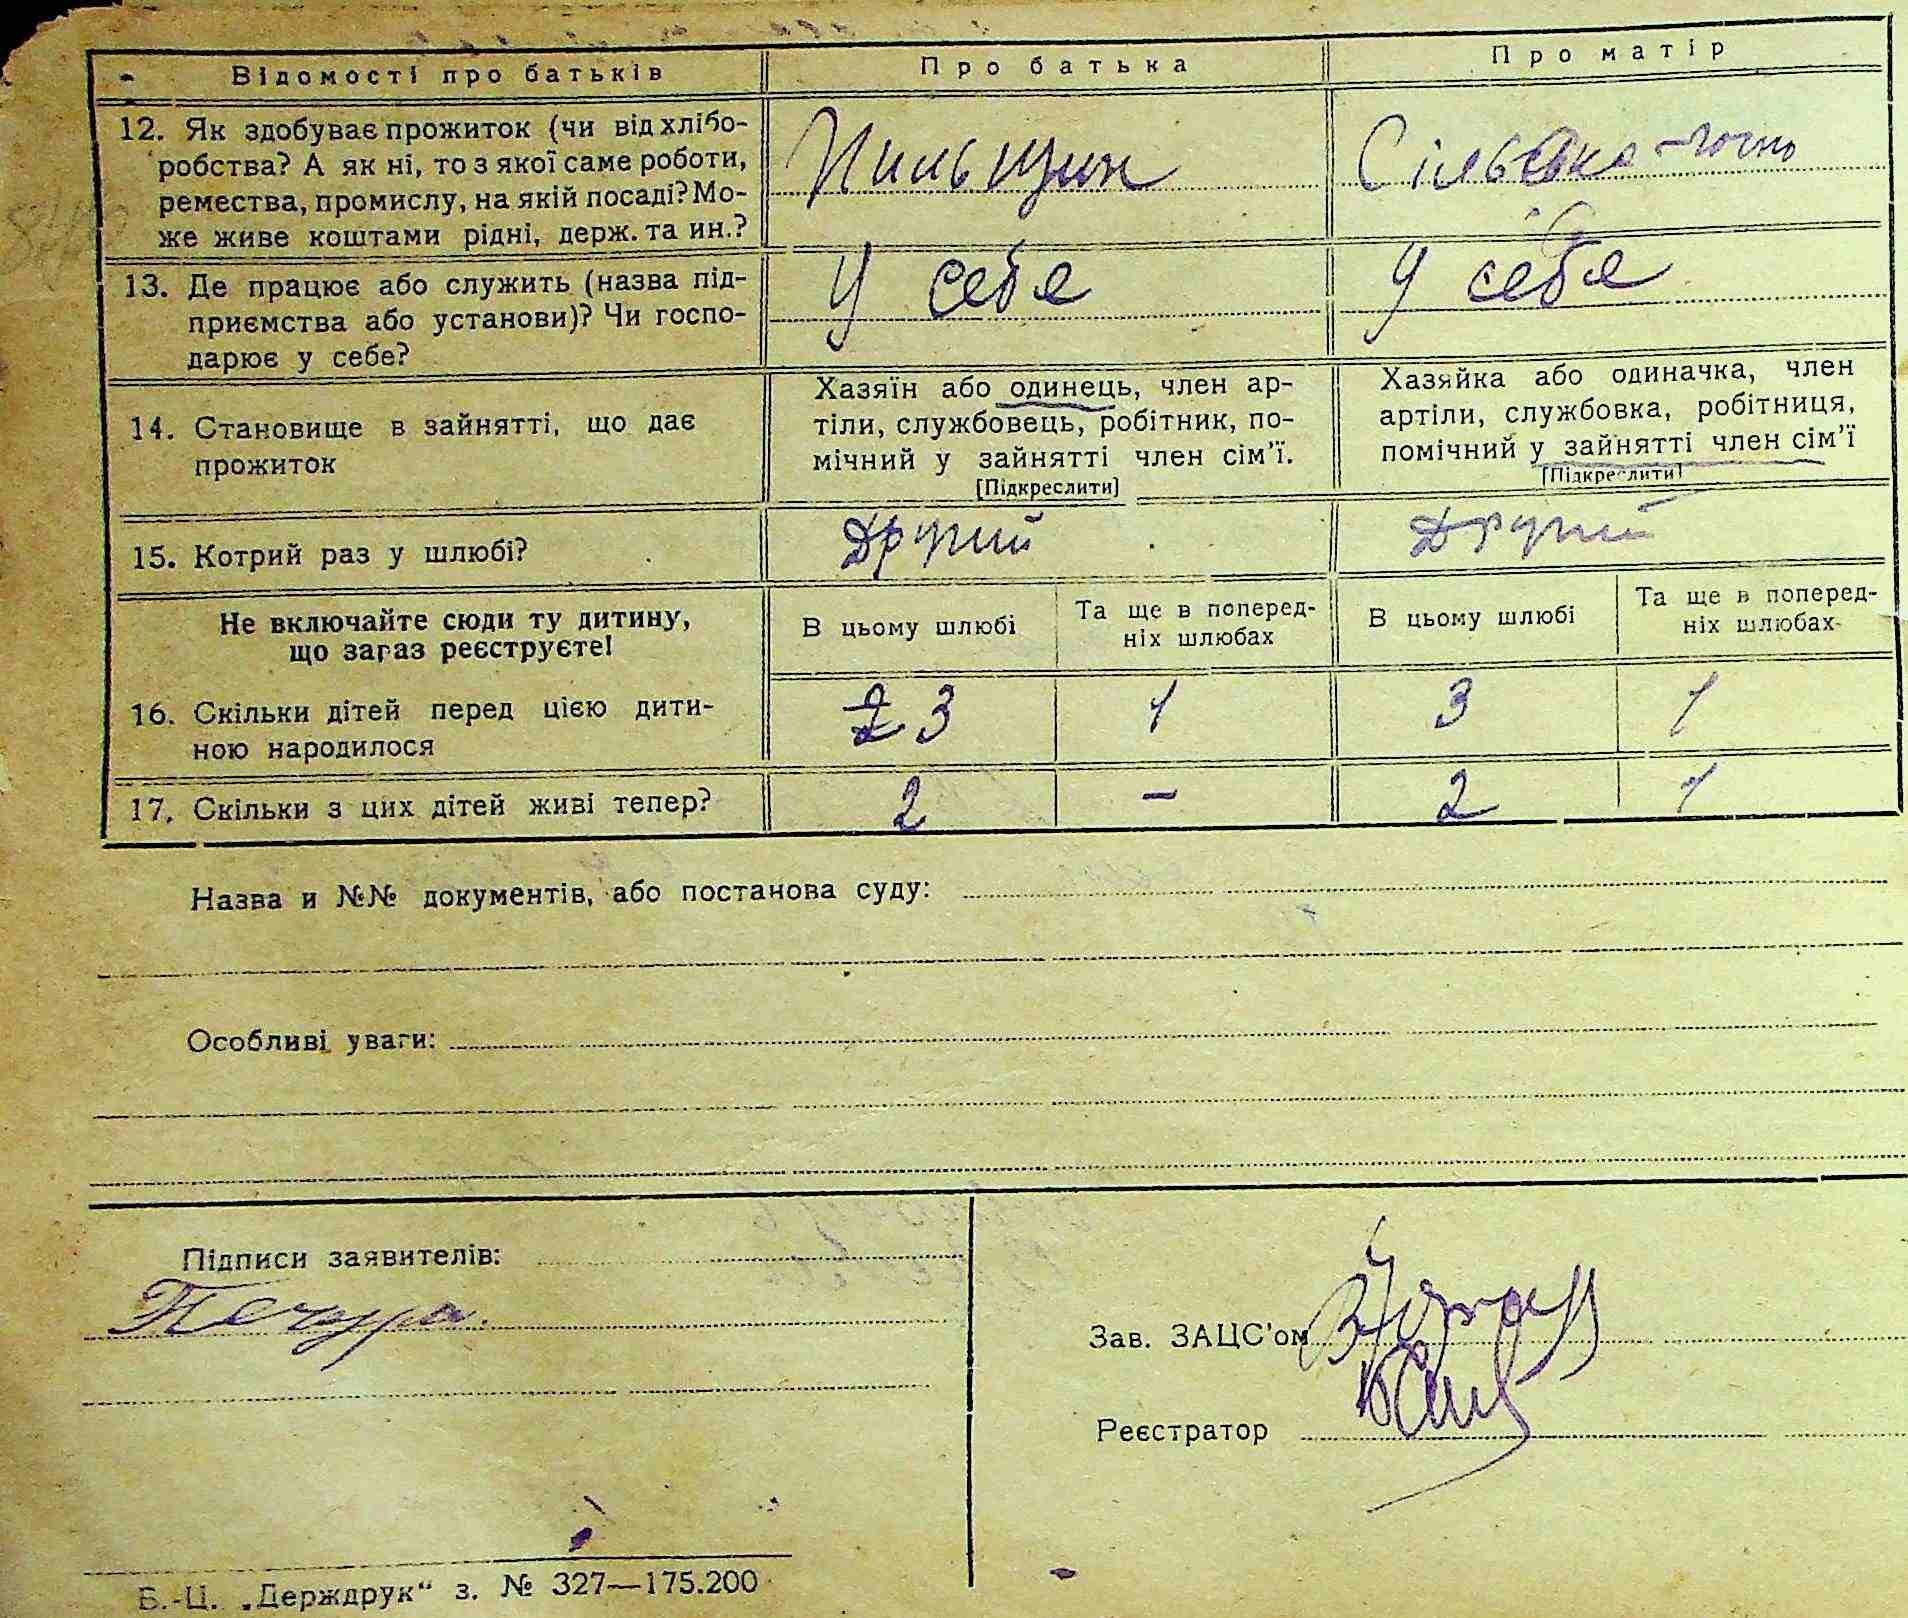 Відомості про батьків
Про батька
Про матір
12. Як здобуває прожиток (чи від хлібо-
робства? А як ні, то з якої саме роботи,
ремества, промислу, на якій посаді? Мо-
же живе коштами рідні, держ. та ин.?
Пильщик
Сільська
13. Де працює або служить (назва під-
приємства або установи)? Чи госпо-
дарює у себе?
У себе
У себе
14. Становище в зайнятті, що дає
прожиток
Хазяїн або одинець, член ар-
тіли, службовець, робітник, по-
мічний у зайнятті член сім'ї.
[Підкреслити]
Хазяйка або одиначка, член
артіли, службовка, робітниця,
помічний у зайнятті член сім'ї
[Підкреслити]
15. Котрий раз у шлюбі?
Другий
Другий
Не включайте сюди ту дитину,
що зараз реєструєте!
В цьому шлюбі
Та ще в поперед-
ніх шлюбах
В цьому шлюбі
Та ще в поперед-
ніх шлюбах
16. Скільки дітей перед цією дити-
ною народилося
2 3
1
3
1
17. Скільки з цих дітей живі тепер?
2
-
2
1
Назва и №№ документів, або постанова суду:
Особливі уваги:
Підписи заявителів:
Печура.
Зав. ЗАЦС'ом
Реєстратор
Б.-Ц. „Держдрук" з. № 327—175.200